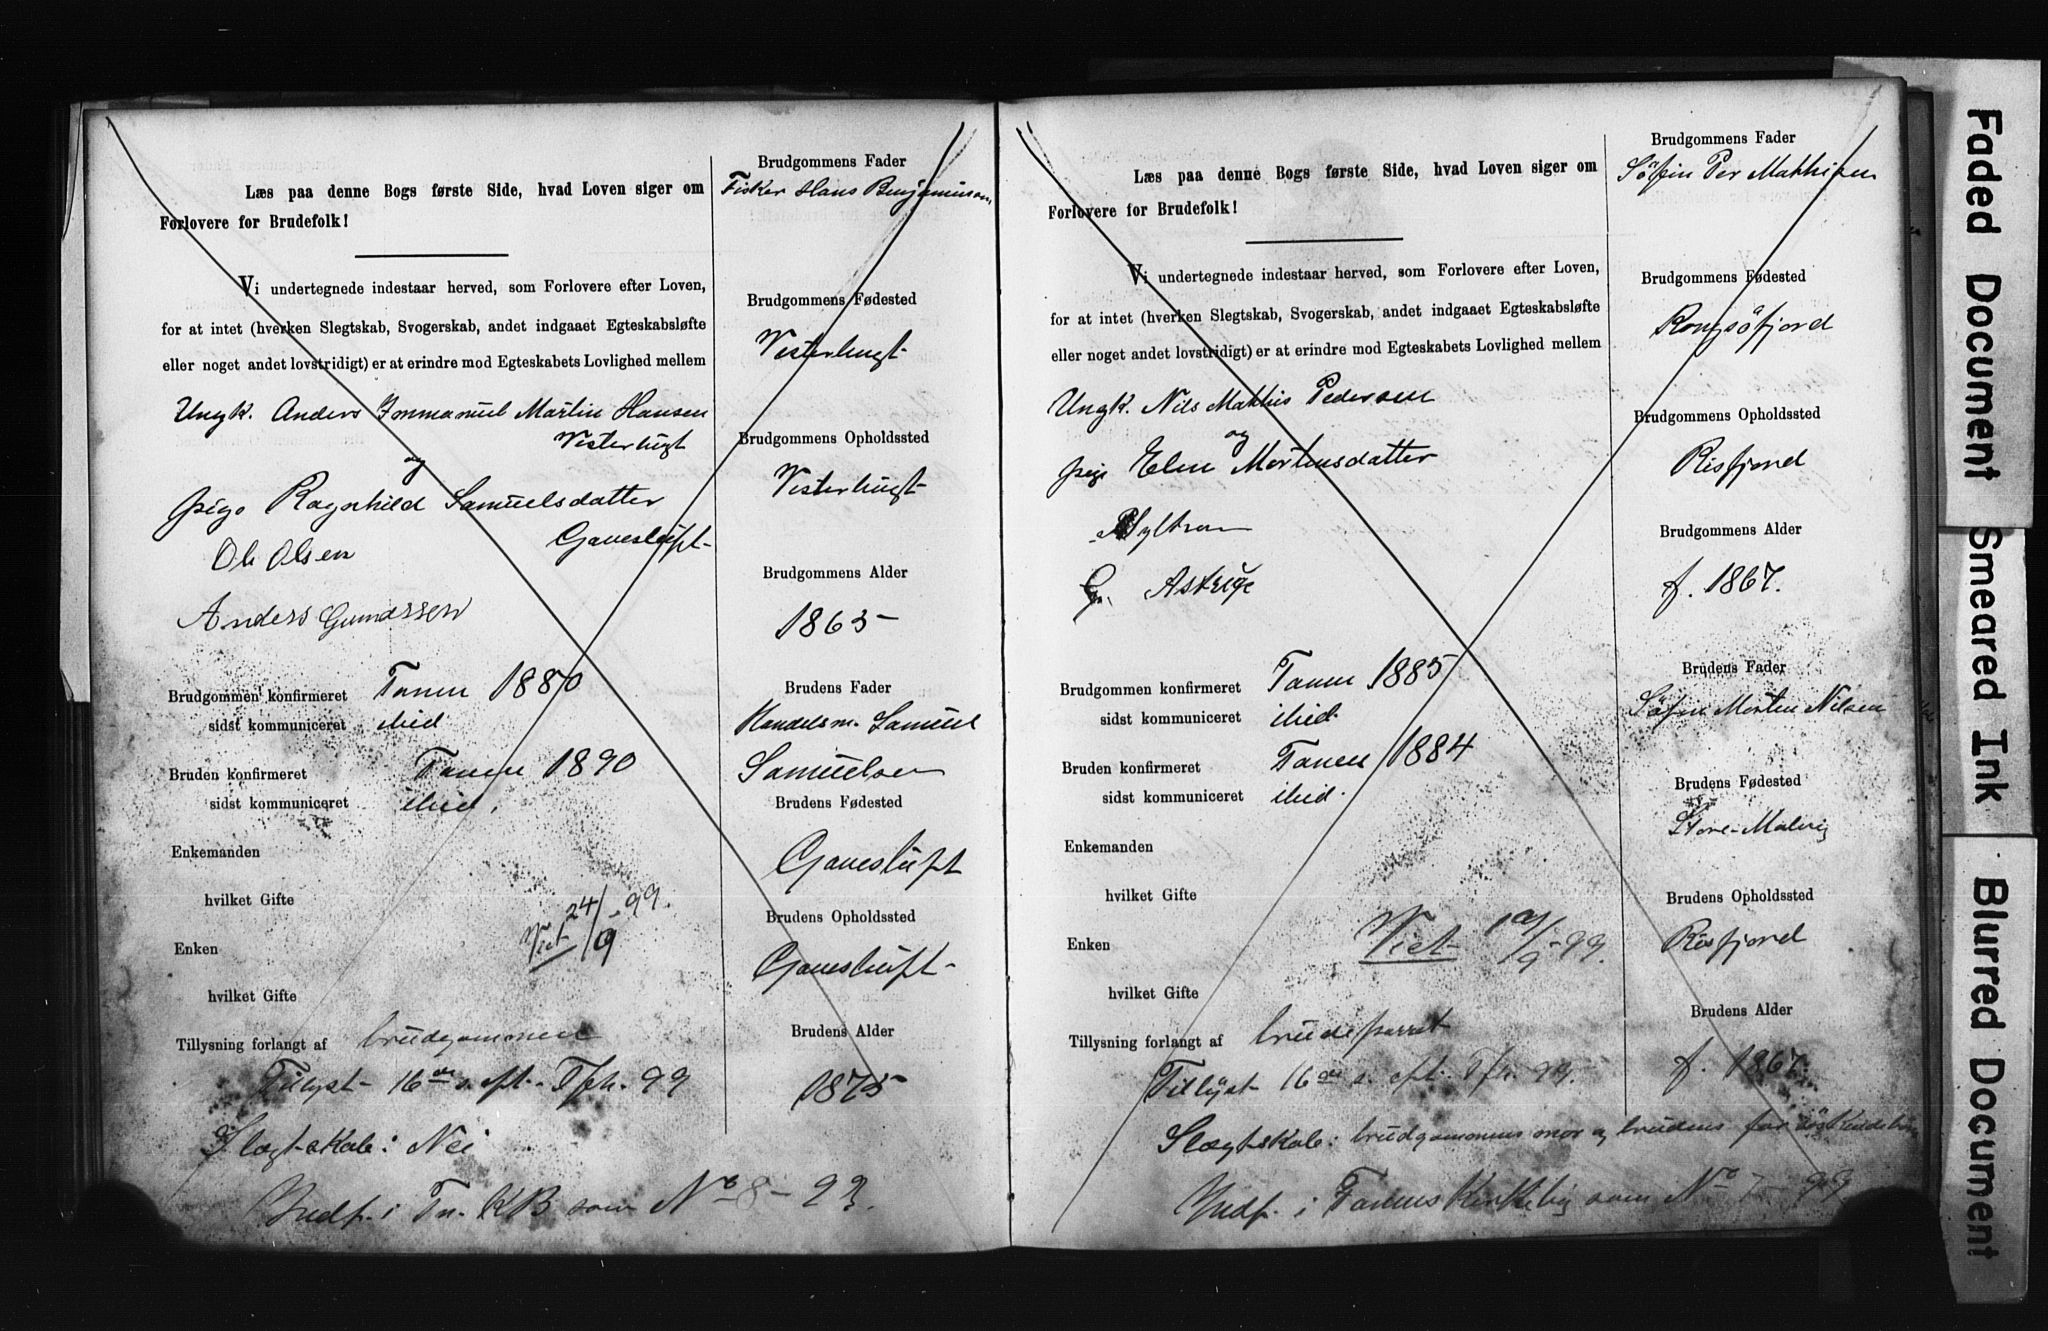 Læs paa denne Bogs første Side, hvad Loven siger om
Forlovere for Brudefolk!
Vi undertegnede indestaar herved, som Forlovere efter Loven,
for at intet (hverken Slegtskab, Svogerskab, andet indgaaet Egteskabsløfte
eller noget andet lovstridigt) er at erindre mod Egteskabets Lovlighed mellem
Ungk. Anders Immanuel Martin Hansen
Vesterbugt
og
pige Ragnhild Samuelsdatter
Gavesluft
Ole Olsen
Anders Gundssen
Brudgommen konfirmeret Tanen 1880
sidst kommuniceret ibid
Bruden konfirmeret Tanen 1890
sidst kommuniceret ibid.
Enkemanden
hvilket Gifte
Viet 24/9 -99.
Enken
hvilket Gifte
Tillysning forlangt af brudgommen
Tillyst 16de s. eft. Tfh. 99
Slægtskab: Nei
Indf. i Tn. KB som No 8 - 99.
Brudgommens Fader
Fisker Hans Benjaminsen
Brudgommens Fødested
Vesterbugt
Brudgommens Opholdssted
Vesterbugt
Brudgommens Alder
1865
Brudens Fader
Handelsm. Samuel
Samuelsen
Brudens Fødested
Gavesluft
Brudens Opholdssted
Gavesluft
Brudens Alder
1875
Læs paa denne Bogs første Side, hvad Loven siger om
Forlovere for Brudefolk!
Vi undertegnede indestaar herved, som Forlovere efter Loven,
for at intet (hverken Slegtskab, Svogerskab, andet indgaaet Egteskabsløfte
eller noget andet lovstridigt) er at erindre mod Egteskabets Lovlighed mellem
Ungk. Nils Mathis Pedersen
og
pige Elen Mortensdatter
G. Astrige
Brudgommen konfirmeret Tanen 1885
sidst kommuniceret ibid.
Bruden konfirmeret Tanen 1884
sidst kommuniceret ibid.
Enkemanden
hvilket Gifte
Enken
Viet /9 -99.
hvilket Gifte
Tillysning forlangt af brudeparret
Tillyst 16de s. eft. Tfh. 99.
Slægtskab: brudgommens mor og brudens far
Indf. i Tanens Kirkebog som No 7 - 99
Brudgommens Fader
Søfin Per Mathisen
Brudgommens Fødested
Kongsöfjord
Brudgommens Opholdssted
Risfjord
Brudgommens Alder
f. 1867.
Brudens Fader
Söfin Morten Nilsen
Brudens Fødested
Store-Malvig
Brudens Opholdssted
Risfjord
Brudens Alder
f. 1867.
Faded Document
Smeared Ink
Blurred Document